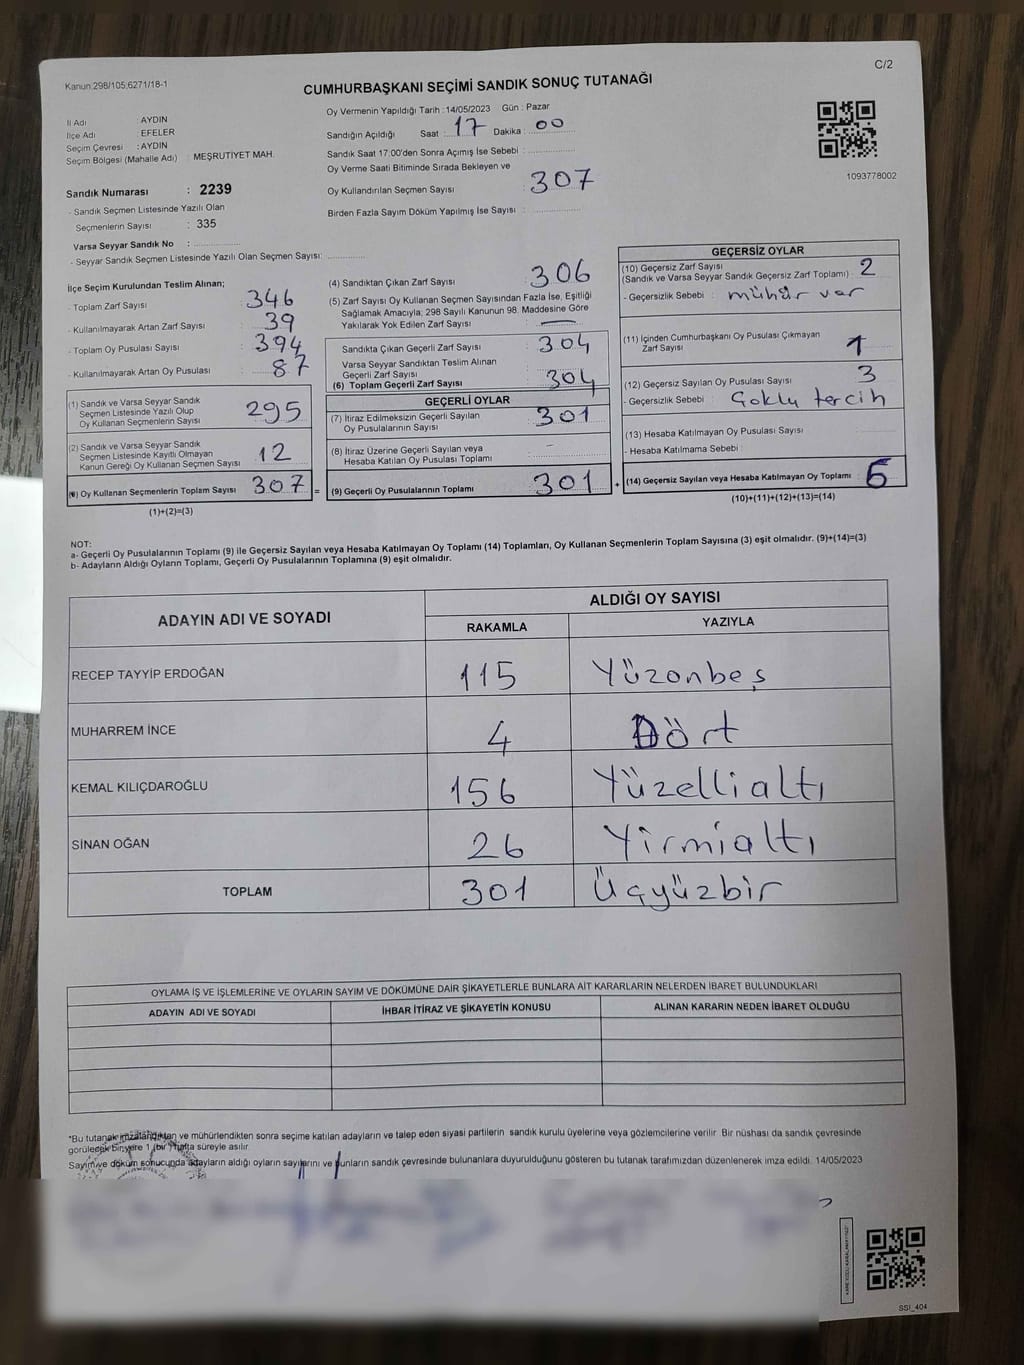 Kanun:298/105;6271/18-1
C/2
CUMHURBAŞKANI SEÇİMİ SANDIK SONUÇ TUTANAĞI
İl Adı : AYDIN
İlçe Adı : EFELER
Seçim Çevresi : AYDIN
Seçim Bölgesi (Mahalle Adı) : MEŞRUTİYET MAH.
Sandık Numarası : 2239
- Sandık Seçmen Listesinde Yazılı Olan
Seçmenlerin Sayısı : 335
Varsa Seyyar Sandık No :
- Seyyar Sandık Seçmen Listesinde Yazılı Olan Seçmen Sayısı:
Oy Vermenin Yapıldığı Tarih : 14/05/2023 Gün : Pazar
Sandığın Açıldığı Saat : 17 Dakika : 00
Sandık Saat 17:00'den Sonra Açımış İse Sebebi :
Oy Verme Saati Bitiminde Sırada Bekleyen ve
Oy Kullandırılan Seçmen Sayısı : 307
Birden Fazla Sayım Döküm Yapılmış İse Sayısı :
1093778002
İlçe Seçim Kurulundan Teslim Alınan;
- Toplam Zarf Sayısı : 346
- Kullanılmayarak Artan Zarf Sayısı : 39
- Toplam Oy Pusulası Sayısı : 394
- Kullanılmayarak Artan Oy Pusulası : 87
(1) Sandık ve Varsa Seyyar Sandık
Seçmen Listesinde Yazılı Olup
Oy Kullanan Seçmenlerin Sayısı 295
(2) Sandık ve Varsa Seyyar Sandık
Seçmen Listesinde Kayıtlı Olmayan
Kanun Gereği Oy Kullanan Seçmen Sayısı 12
Oy Kullanan Seçmenlerin Toplam Sayısı 307 =
(1)+(2)=(3)
(4) Sandıktan Çıkan Zarf Sayısı : 306
(5) Zarf Sayısı Oy Kullanan Seçmen Sayısından Fazla İse, Eşitliği
Sağlamak Amacıyla; 298 Sayılı Kanunun 98. Maddesine Göre
Yakılarak Yok Edilen Zarf Sayısı : —
Sandıkta Çıkan Geçerli Zarf Sayısı : 304
Varsa Seyyar Sandıktan Teslim Alınan
Geçerli Zarf Sayısı
(6) Toplam Geçerli Zarf Sayısı : 304
GEÇERLİ OYLAR
(7) İtiraz Edilmeksizin Geçerli Sayılan
Oy Pusulalarının Sayısı : 301
(8) İtiraz Üzerine Geçerli Sayılan veya
Hesaba Katılan Oy Pusulası Toplamı : -
(9) Geçerli Oy Pusulalarının Toplamı : 301 +
GEÇERSİZ OYLAR
(10) Geçersiz Zarf Sayısı
(Sandık ve Varsa Seyyar Sandık Geçersiz Zarf Toplamı) : 2
- Geçersizlik Sebebi : mühür var
(11) İçinden Cumhurbaşkanı Oy Pusulası Çıkmayan
Zarf Sayısı : 1
(12) Geçersiz Sayılan Oy Pusulası Sayısı : 3
- Geçersizlik Sebebi : Çoklu tercih
(13) Hesaba Katılmayan Oy Pusulası Sayısı :
- Hesaba Katılmama Sebebi :
(14) Geçersiz Sayılan veya Hesaba Katılmayan Oy Toplamı : 6
(10)+(11)+(12)+(13)=(14)
NOT:
a- Geçerli Oy Pusulalarının Toplamı (9) ile Geçersiz Sayılan veya Hesaba Katılmayan Oy Toplamı (14) Toplamları, Oy Kullanan Seçmenlerin Toplam Sayısına (3) eşit olmalıdır. (9)+(14)=(3)
b- Adayların Aldığı Oyların Toplamı, Geçerli Oy Pusulalarının Toplamına (9) eşit olmalıdır.
ADAYIN ADI VE SOYADI
ALDIĞI OY SAYISI
RAKAMLA YAZIYLA
RECEP TAYYİP ERDOĞAN 115 Yüzonbeş
MUHARREM İNCE 4 Dört
KEMAL KILIÇDAROĞLU 156 Yüzellialtı
SİNAN OĞAN 26 Yirmialtı
TOPLAM 301 Üçyüzbir
OYLAMA İŞ VE İŞLEMLERİNE VE OYLARIN SAYIM VE DÖKÜMÜNE DAİR ŞİKAYETLERLE BUNLARA AİT KARARLARIN NELERDEN İBARET BULUNDUKLARI
ADAYIN ADI VE SOYADI İHBAR İTİRAZ VE ŞİKAYETİN KONUSU ALINAN KARARIN NEDEN İBARET OLDUĞU
*Bu tutanak imzalandıktan ve mühürlendikten sonra seçime katılan adayların ve talep eden siyasi partilerin sandık kurulu üyelerine veya gözlemcilerine verilir. Bir nüshası da sandık çevresinde
görülecek bir yere 1 (bir) hafta süreyle asılır.
Sayım ve döküm sonucunda adayların aldığı oyların sayılarını ve bunların sandık çevresinde bulunanlara duyurulduğunu gösteren bu tutanak tarafımızdan düzenlenerek imza edildi. 14/05/2023
SSI_404